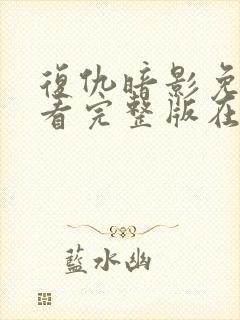 復仇暗影免
看完整版在
藍水幽